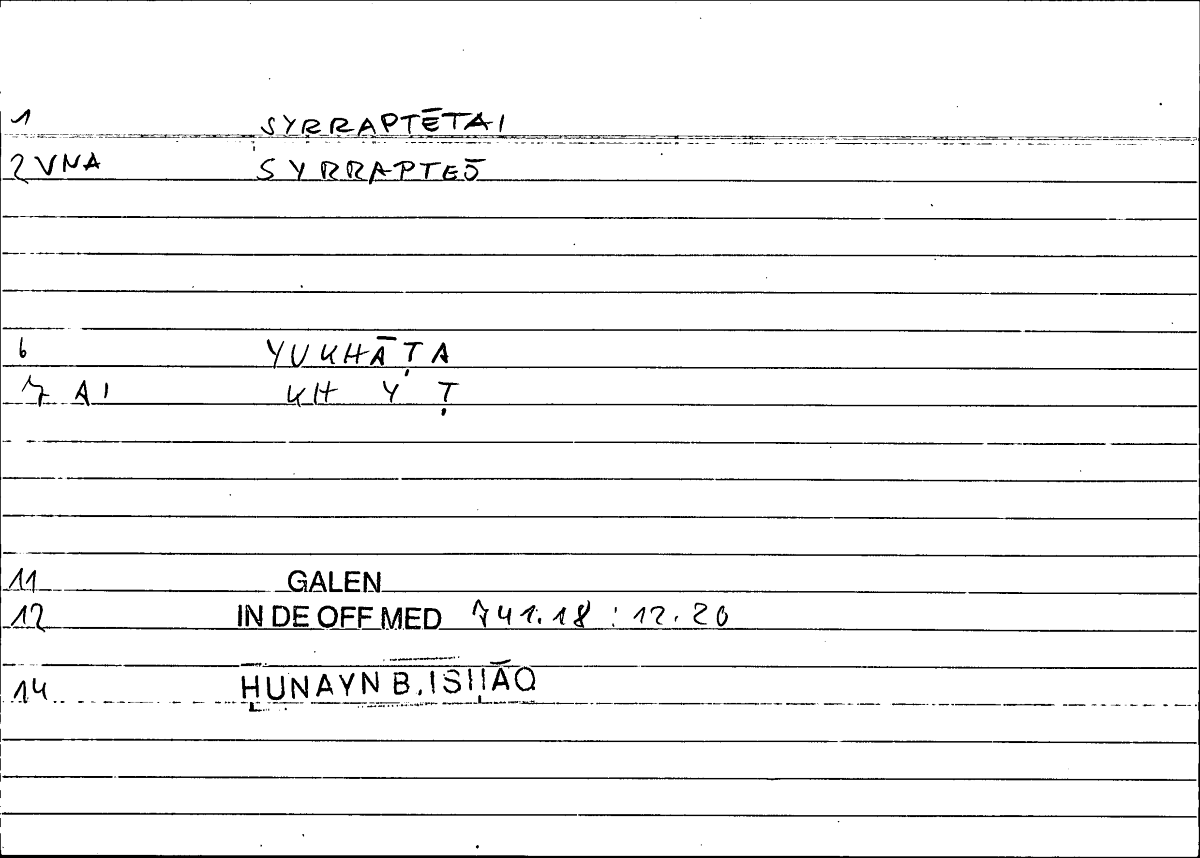 1 SYRRAPTĒTAI
2 VNA SYRRAPTEŌ
6 YUKHĀṬA
7 AI KH Y Ṭ
11 GALEN
12 IN DE OFF MED 741.18 : 12.20
14 ḤUNAYN B. ISḤĀQ